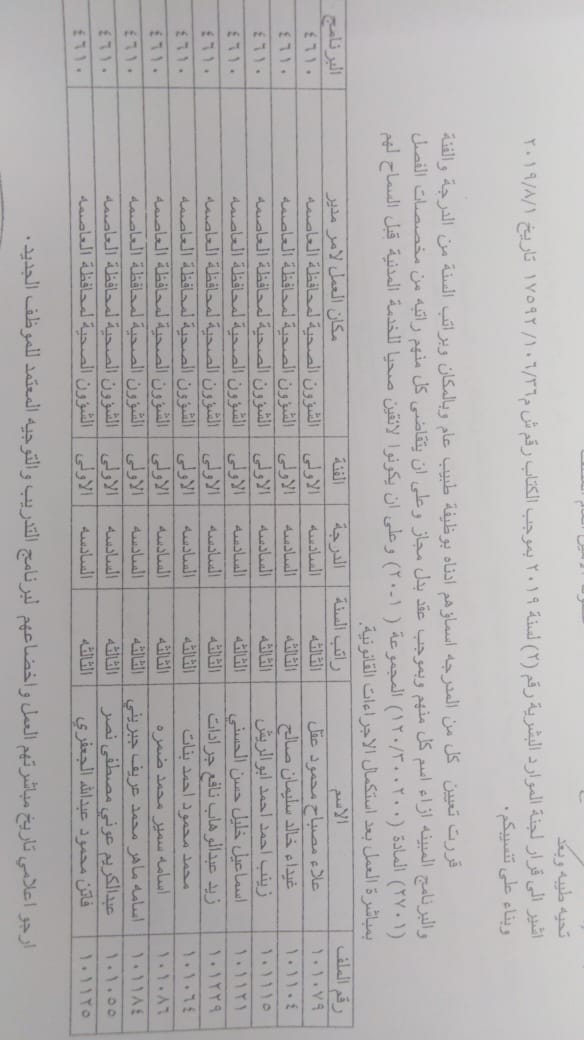 تحيه طيبه وبعد
اشير الى قرار لجنة الموارد البشرية رقم (٢) لسنة ٢٠١٩ بموجب الكتاب رقم ش م/٣٦/١٠٦/١٧٥٩٢ تاريخ ٢٠١٩/٨/١
وبناء على تنسيبكم .
قررت تعيين كل من المدرجه اسماؤهم ادناه بوظيفة طبيب عام وبالمكان وبراتب السنة من الدرجة والفئة
والبرنامج المبينه ازاء اسم كل منهم وبموجب عقد بدل مجاز وعلى ان يتقاضى كل منهم راتبه من مخصصات الفصل
(٢٧٠١) المادة (١٢٠/٣٠٠٢٠٠) المجموعة (٢٠-١) وعلى ان يكونوا لائقين صحيا للخدمة المدنية قبل السماح لهم
بمباشرة العمل بعد استكمال الاجراءات القانونية.
رقم الملف الاسم راتب السنة الدرجة الفئة مكان العمل لامر مدير البرنامج
١٠١٠٧٩ علاء مصباح محمود عقل الثالثه السادسه الاولى الشؤون الصحية لمحافظة العاصمه ٤٦١٠
١٠١١٠٤ غيداء خالد سليمان صالح الثالثه السادسه الاولى الشؤون الصحية لمحافظة العاصمه ٤٦١٠
١٠١١١٥ زينب احمد احمد ابو الريش الثالثه السادسه الاولى الشؤون الصحية لمحافظة العاصمه ٤٦١٠
١٠١١٢١ اسماعيل خليل حسن الحسني الثالثه السادسه الاولى الشؤون الصحية لمحافظة العاصمه ٤٦١٠
١٠١٢٢٩ زيد عبدالوهاب نافع جرادات الثالثه السادسه الاولى الشؤون الصحية لمحافظة العاصمه ٤٦١٠
١٠١٠٦٤ محمد محمود احمد بنات الثالثه السادسه الاولى الشؤون الصحية لمحافظة العاصمه ٤٦١٠
١٠١٠٨٦ اسامه سمير محمد ضمره الثالثه السادسه الاولى الشؤون الصحية لمحافظة العاصمه ٤٦١٠
١٠١١٨٤ اسامه ماهر محمد عريف جبريني الثالثه السادسه الاولى الشؤون الصحية لمحافظة العاصمه ٤٦١٠
١٠١٠٥٥ عبدالكريم عوني مصطفى نصر الثالثه السادسه الاولى الشؤون الصحية لمحافظة العاصمه ٤٦١٠
١٠١١٢٥ فاتن محمود عبدالله الجعفري الثالثه السادسه الاولى الشؤون الصحية لمحافظة العاصمه ٤٦١٠
ارجو اعلامي تاريخ مباشرتهم العمل واخضاعهم لبرنامج التدريب والتوجيه المعتمد للموظف الجديد .